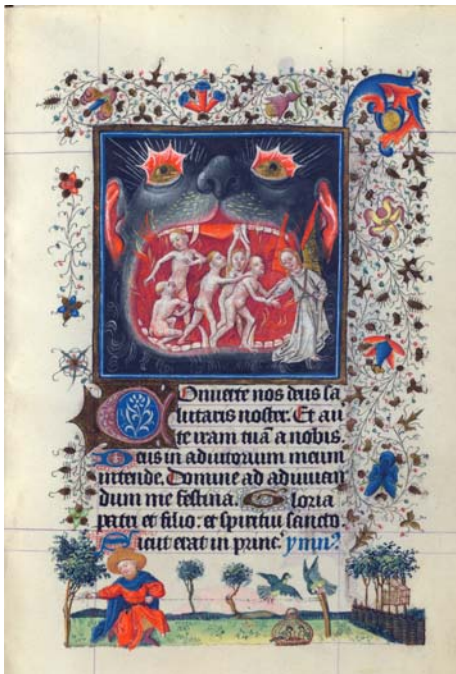 Conuerte nos deus sa
lutaris noster. Et au
te iram tuā a nobis.
Deus in adiutorium meum
intende. Domine ad adiuuan
dum me festina. Gloria
patri et filio: et spiritui sancto.
Sicut erat in princ. ymn